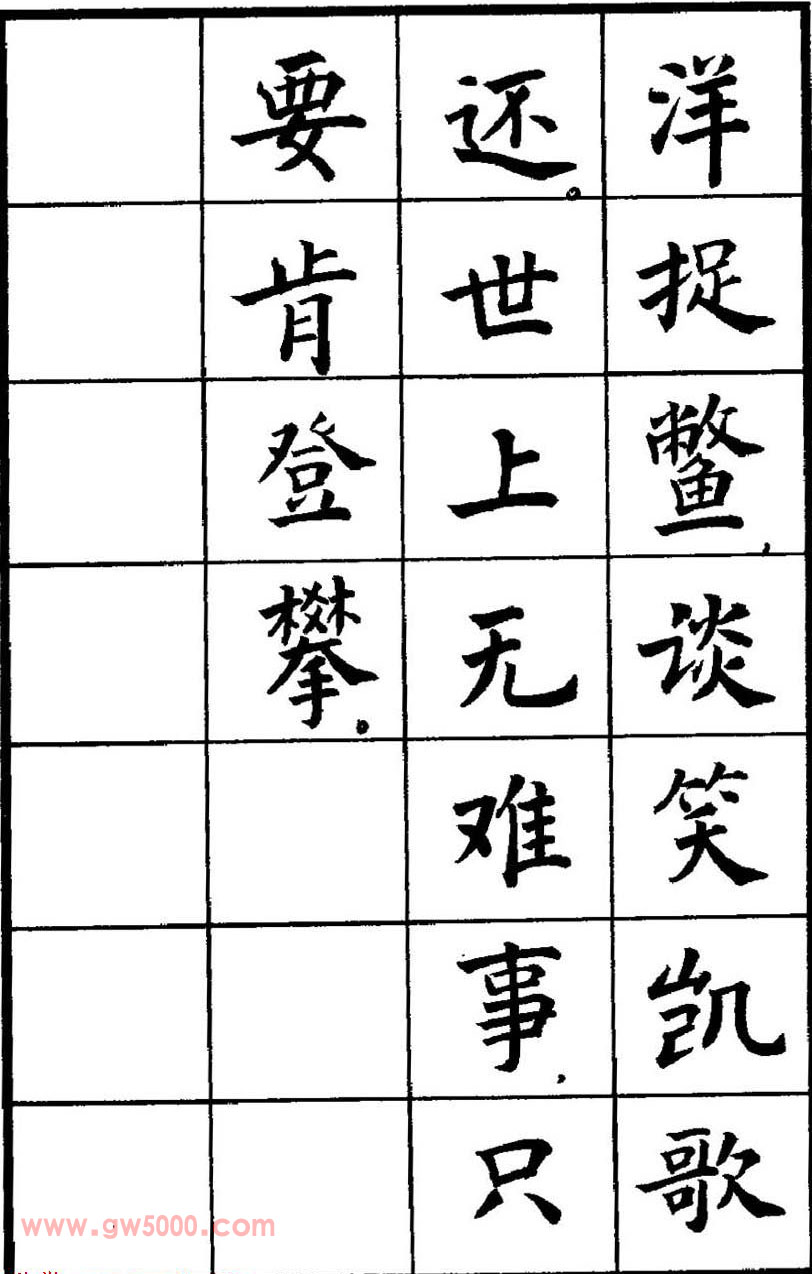 洋捉鳖，谈笑凯歌
还。世上无难事，只
要肯登攀。
www.gw5000.com